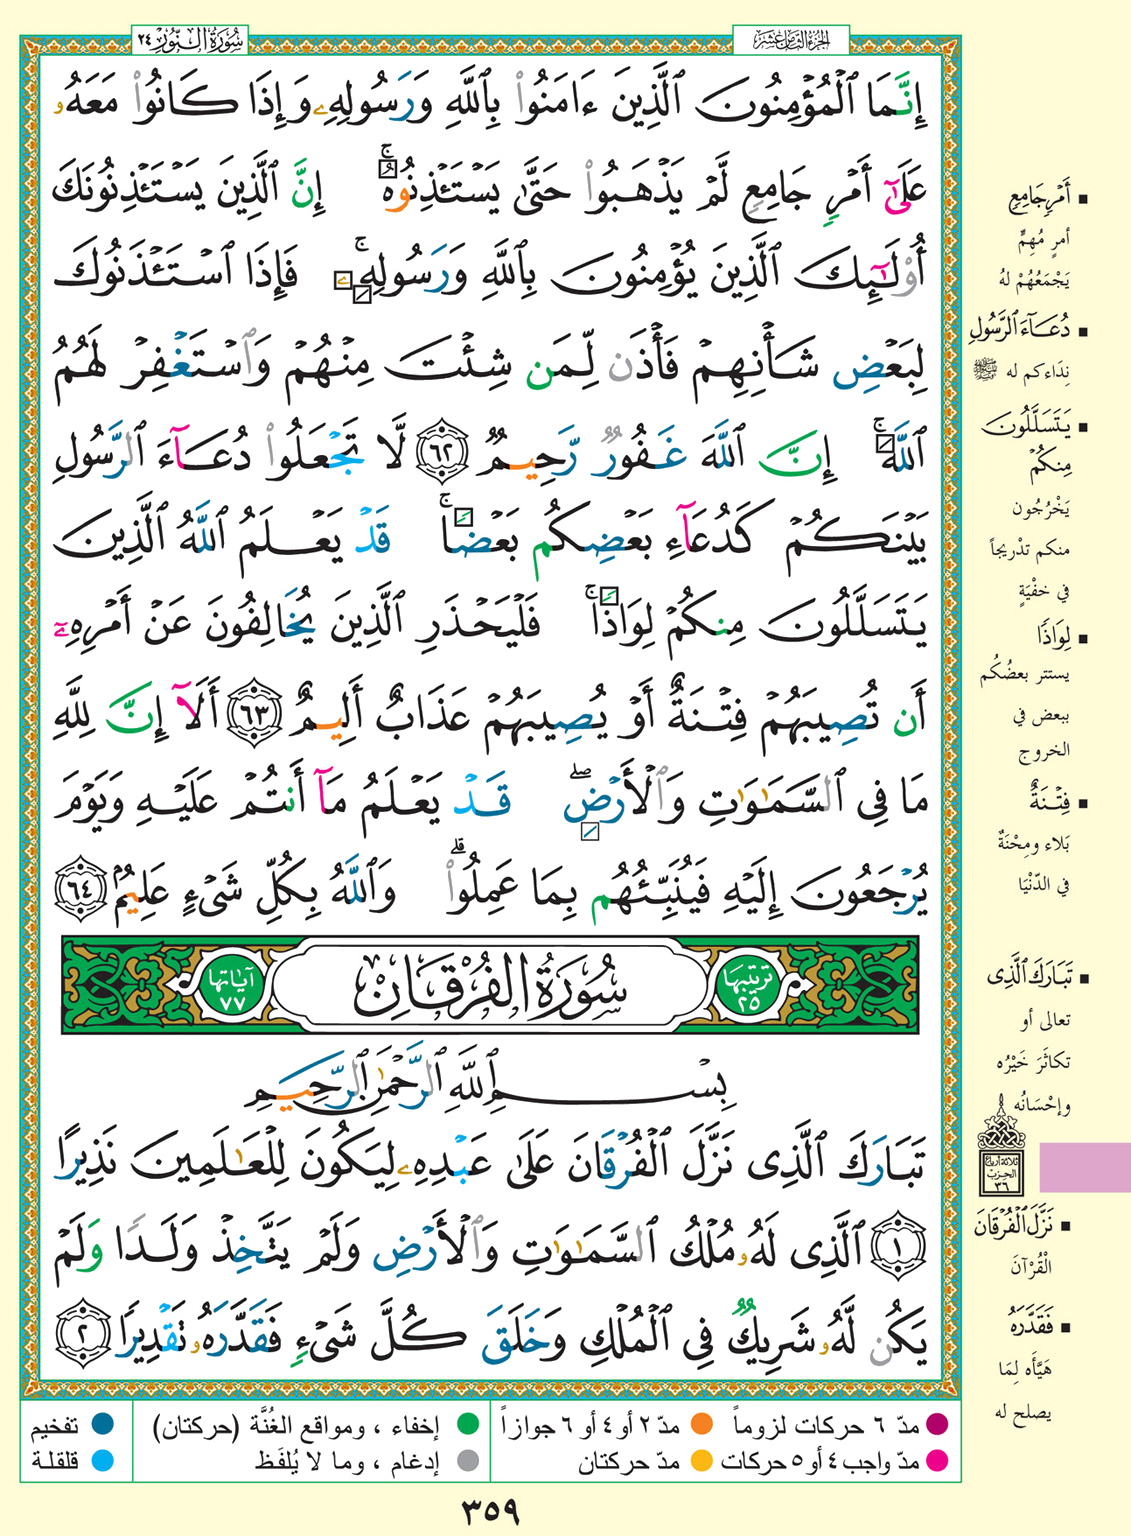 سُورَةُ النُّورِ ٢٤
الجزء الثامن عشر
إِنَّمَا ٱلْمُؤْمِنُونَ ٱلَّذِينَ ءَامَنُوا۟ بِٱللَّهِ وَرَسُولِهِۦ وَإِذَا كَانُوا۟ مَعَهُۥ
عَلَىٰٓ أَمْرٍ جَامِعٍ لَّمْ يَذْهَبُوا۟ حَتَّىٰ يَسْتَـْٔذِنُوهُ ۚ إِنَّ ٱلَّذِينَ يَسْتَـْٔذِنُونَكَ
أُو۟لَـٰٓئِكَ ٱلَّذِينَ يُؤْمِنُونَ بِٱللَّهِ وَرَسُولِهِۦ ۚ فَإِذَا ٱسْتَـْٔذَنُوكَ
لِبَعْضِ شَأْنِهِمْ فَأْذَن لِّمَن شِئْتَ مِنْهُمْ وَٱسْتَغْفِرْ لَهُمُ
ٱللَّهَ ۚ إِنَّ ٱللَّهَ غَفُورٌ رَّحِيمٌ ٦٢ لَّا تَجْعَلُوا۟ دُعَآءَ ٱلرَّسُولِ
بَيْنَكُمْ كَدُعَآءِ بَعْضِكُم بَعْضًا ۚ قَدْ يَعْلَمُ ٱللَّهُ ٱلَّذِينَ
يَتَسَلَّلُونَ مِنكُمْ لِوَاذًا ۚ فَلْيَحْذَرِ ٱلَّذِينَ يُخَالِفُونَ عَنْ أَمْرِهِۦٓ
أَن تُصِيبَهُمْ فِتْنَةٌ أَوْ يُصِيبَهُمْ عَذَابٌ أَلِيمٌ ٦٣ أَلَآ إِنَّ لِلَّهِ
مَا فِى ٱلسَّمَـٰوَٰتِ وَٱلْأَرْضِ ۖ قَدْ يَعْلَمُ مَآ أَنتُمْ عَلَيْهِ وَيَوْمَ
يُرْجَعُونَ إِلَيْهِ فَيُنَبِّئُهُم بِمَا عَمِلُوا۟ ۗ وَٱللَّهُ بِكُلِّ شَىْءٍ عَلِيمٌۢ ٦٤
ترتيبها ٢٥ سُورَةُ الفُرْقَانِ آياتها ٧٧
بِسْمِ ٱللَّهِ ٱلرَّحْمَـٰنِ ٱلرَّحِيمِ
تَبَارَكَ ٱلَّذِى نَزَّلَ ٱلْفُرْقَانَ عَلَىٰ عَبْدِهِۦ لِيَكُونَ لِلْعَـٰلَمِينَ نَذِيرًا
١ ٱلَّذِى لَهُۥ مُلْكُ ٱلسَّمَـٰوَٰتِ وَٱلْأَرْضِ وَلَمْ يَتَّخِذْ وَلَدًا وَلَمْ
يَكُن لَّهُۥ شَرِيكٌ فِى ٱلْمُلْكِ وَخَلَقَ كُلَّ شَىْءٍ فَقَدَّرَهُۥ تَقْدِيرًا ٢
أَمْرٍ جَامِعٍ
أمرٍ مُهِمٍّ
يَجْمَعُهُمْ لهُ
دُعَآءَ ٱلرَّسُولِ
نِداءكم له ﷺ
يَتَسَلَّلُونَ
مِنكُمْ
يَخْرُجُون
منكم تدْريجاً
في خفْيَةٍ
لِوَاذًا
يستتر بعضُكُم
ببعض في
الخروج
فِتْنَةٌ
بَلاء ومِحْنَةٌ
في الدّنْيَا
تَبَارَكَ ٱلَّذِى
تعالى أو
تكاثَرَ خَيْرُه
وإحْسَانُه
ثلاثة أرباع
الحزب
٣٦
نَزَّلَ ٱلْفُرْقَانَ
الْقُرْآنَ
فَقَدَّرَهُ
هَيَّأه لِمَا
يصلح له
مدّ ٦ حركات لزوماً مدّ ٢ أو ٤ أو ٦ جوازاً إخفاء ، ومواقع الغُنَّة (حركتان) تفخيم
مدّ واجب ٤ أو ٥ حركات مدّ حركتان إدغام ، وما لا يُلفَظ قلقلة
٣٥٩